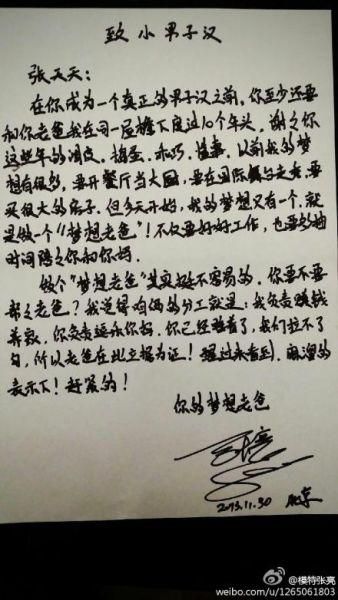 致小男子汉
张天天:
在你成为一个真正的男子汉之前,你至少还要
和你老爸我在同一屋檐下度过10个年头。谢谢你
这些年的调皮、捣蛋、乖巧、懂事。以前我的梦
想有很多,要开餐厅当大厨,要在国际舞台走秀,要
买很大的房子。但今天开始,我的梦想又有一个,就
是做一个"梦想老爸"!不仅要好好工作,也要多抽
时间陪陪你和你妈。
做个"梦想老爸"其实挺不容易的。你要不要
帮帮老爸?我觉得咱俩的分工就是:我负责赚钱
养家,你负责逗乐你妈。你已经睡着了,我们拉不了
勾,所以老爸在此立据为证!醒过来看到,麻溜的
表示下!赶紧的!
你的梦想老爸
张亮
2013.11.30 北京
@模特张亮
weibo.com/u/1265061803